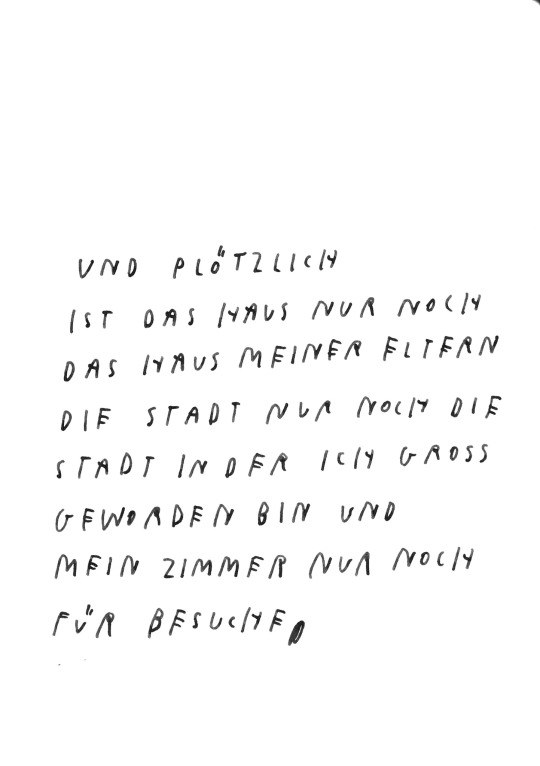 UND PLÖTZLICH
IST DAS HAUS NUR NOCH
DAS HAUS MEINER ELTERN
DIE STADT NUR NOCH DIE
STADT IN DER ICH GROSS
GEWORDEN BIN UND
MEIN ZIMMER NUR NOCH
FÜR BESUCHE.